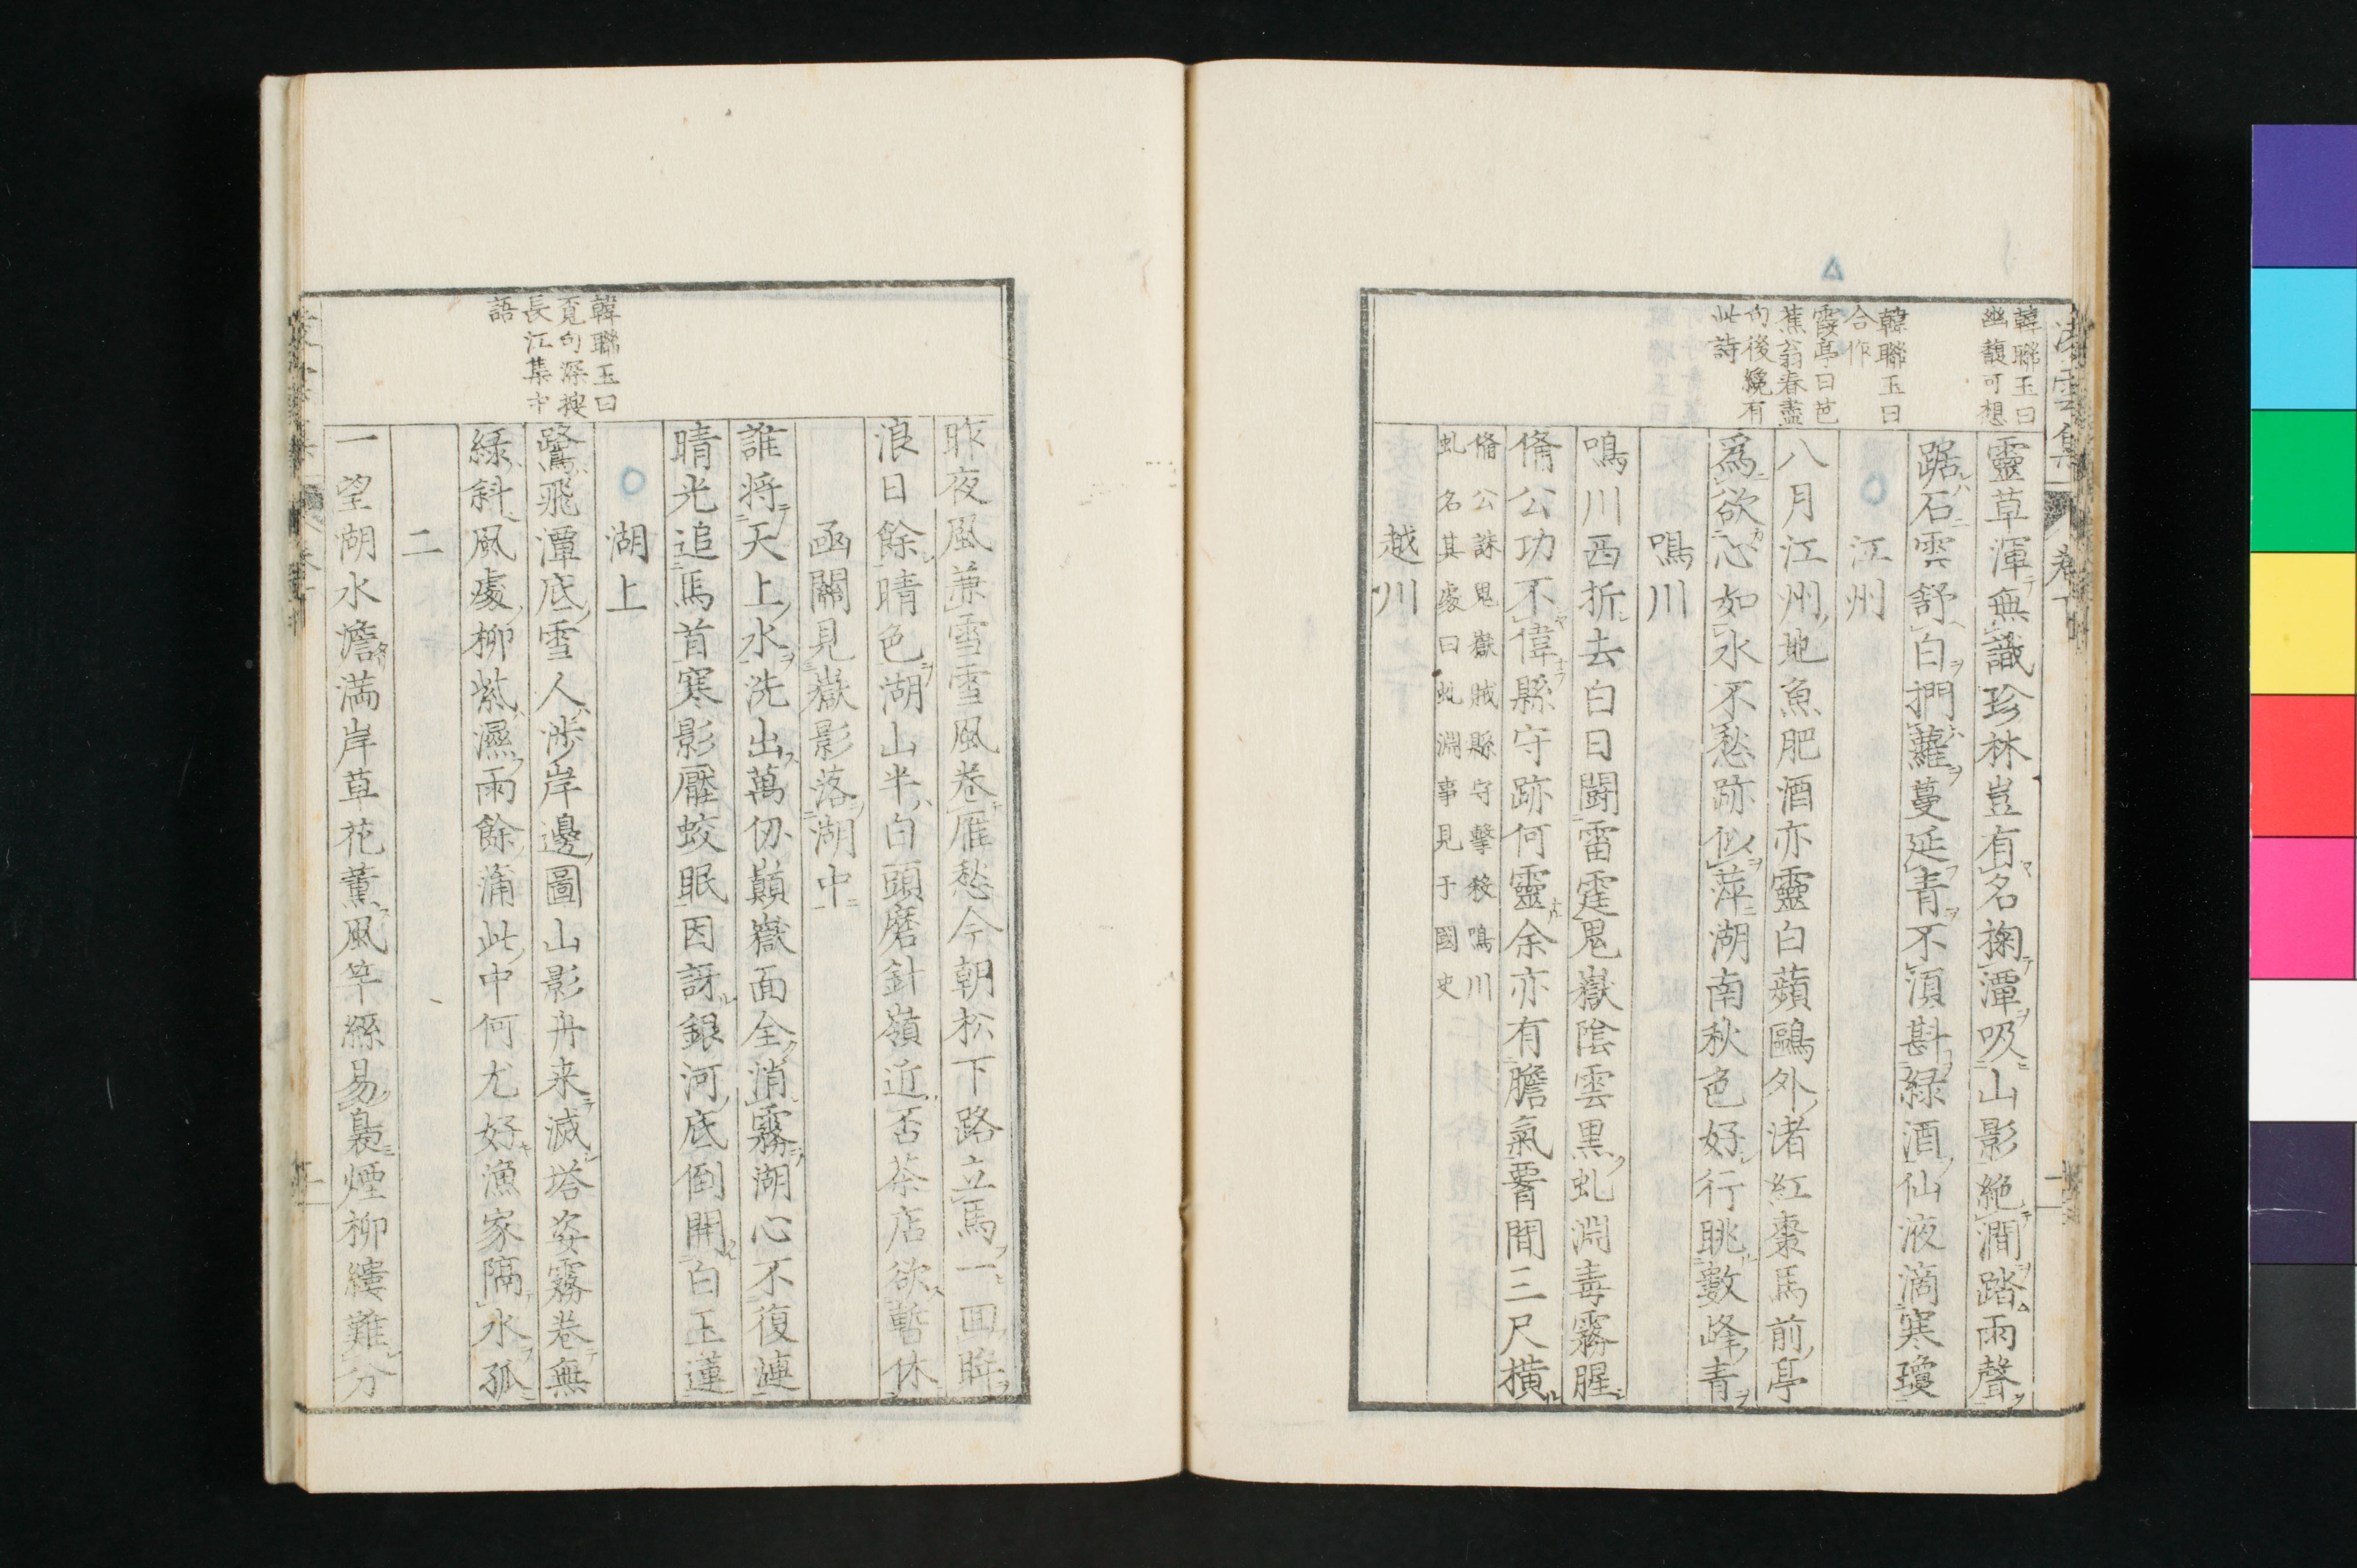 韓聯玉曰
幽馥可想
韓聯玉曰
合作
霞亭曰芭
蕉翁春盡
句後纔有
此詩
靈草渾無識珍林豈有名掬潭吸山影絶澗踏雨聲
踞石雲舒白捫蘿蔓延青不須斟緑酒仙液滴寒瓊
江州
八月江州地魚肥酒亦靈白蘋鷗外渚紅棗馬前亭
爲欲心如水不愁跡似萍湖南秋色好行眺數峰青
鳴川
鳴川西折去白日鬪雷霆鬼嶽陰雲黒虬淵毒霧腥
脩公功不偉縣守跡何靈余亦有膽氣腰間三尺橫
脩公誅鬼嶽賊縣守擊殺鳴川
虬名其處曰虬淵事見于國史
越川
韓聯玉曰
覓句深搜
長江集中
語
昨夜風兼雪雪風卷雁愁今朝松下路立馬一回眸
浪日餘晴色湖山半白頭磨針嶺近否茶店欲暫休
函關見嶽影落湖中
誰将天上水洗出萬仞巔嶽面全消霧湖心不復漣
晴光追馬首寒影壓蛟眠因訝銀河底倒開白玉蓮
湖上
鷺飛潭底雪人渉岸邊圖山影舟来滅塔姿霧卷無
緑斜風處柳紫濕雨餘蒲此中何尤好漁家隔水孤
二
一望湖水澹満岸草花薫風竿絲易裊煙柳縷難分